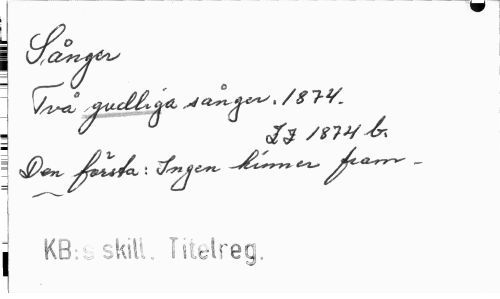 Sånger
Två gudliga sånger. 1874.
1874 b.
Den första: Ingen hinner fram -
KB:s skill. Titelreg.